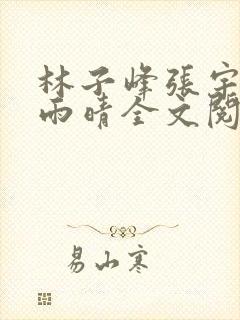 林子峰張宇
雨晴全文閱
易山寒